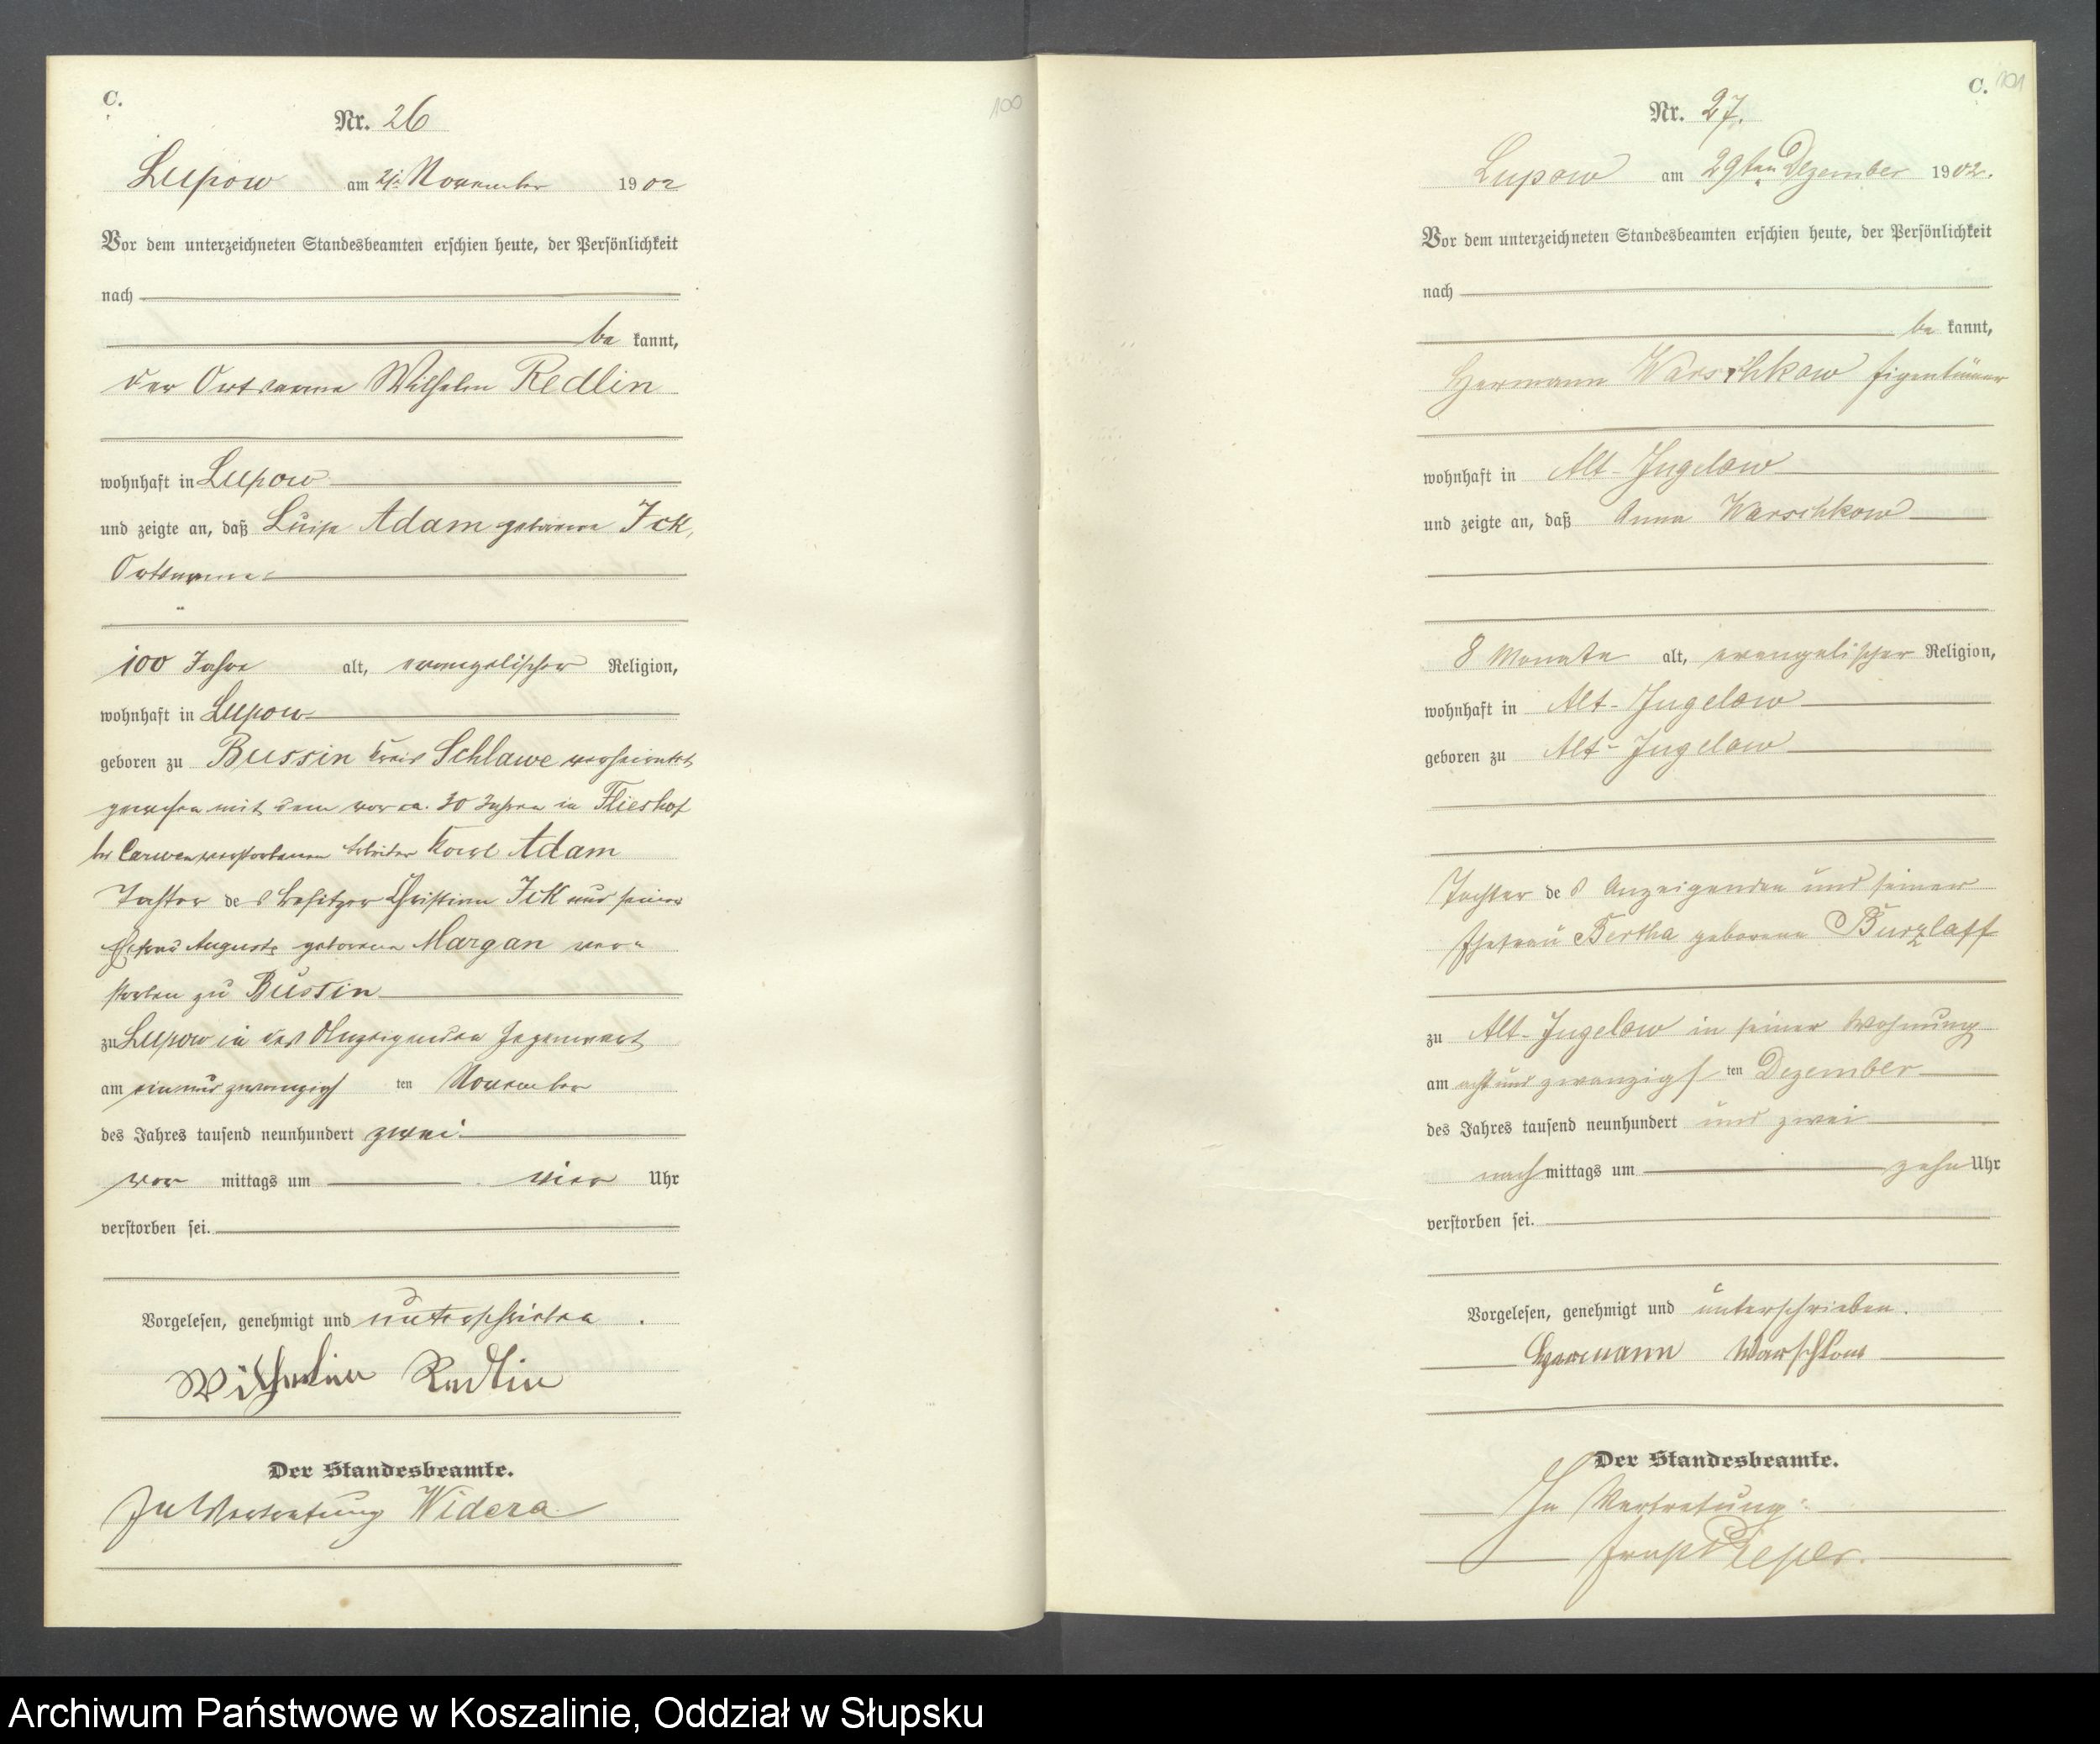 C.
100
Nr. 26
Lupow am 21. November 1902
Vor dem unterzeichneten Standesbeamten erschien heute, der Persönlichkeit
nach
be kannt,
der Ortsarme Wilhelm Redlin
wohnhaft in Lupow
und zeigte an, daß Luise Adam geborene Ick,
Ortsarme
100 Jahre alt, evangelischer Religion,
wohnhaft in Lupow
geboren zu Bussin Kreis Schlawe verheiratet
gewesen mit dem vor ca. 30 Jahren in Flieshof
bei Carwen verstorbenen Arbeiter Karl Adam
Tochter des Besitzer Christian Ick und seiner
Ehefrau Auguste geborenen Margan ver-
storben zu Bussin
zu Lupow in des Anzeigenden Gegenwart
am einundzwanzigsten November
des Jahres tausend neunhundert zwei
vor mittags um vier Uhr
verstorben sei.
Vorgelesen, genehmigt und unterschrieben.
Wilhelm Redlin
Der Standesbeamte.
In Vertretung Widera
C. 101
Nr. 27.
Lupow am 29ten Dezember 1902.
Vor dem unterzeichneten Standesbeamten erschien heute, der Persönlichkeit
nach
be kannt,
Hermann Warschkow Eigentümer
wohnhaft in Alt-Jugelow
und zeigte an, daß Anna Warschkow
8 Monate alt, evangelischer Religion,
wohnhaft in Alt-Jugelow
geboren zu Alt-Jugelow
Tochter des Anzeigenden und seiner
Ehefrau Bertha geborene Burzlaff
zu Alt-Jugelow in seiner Wohnung
am acht und zwanzigsten Dezember
des Jahres tausend neunhundert und zwei
nach mittags um zehn Uhr
verstorben sei.
Vorgelesen, genehmigt und unterschrieben.
Hermann Warschkow
Der Standesbeamte.
In Vertretung:
Pieper.
Archiwum Państwowe w Koszalinie, Oddział w Słupsku